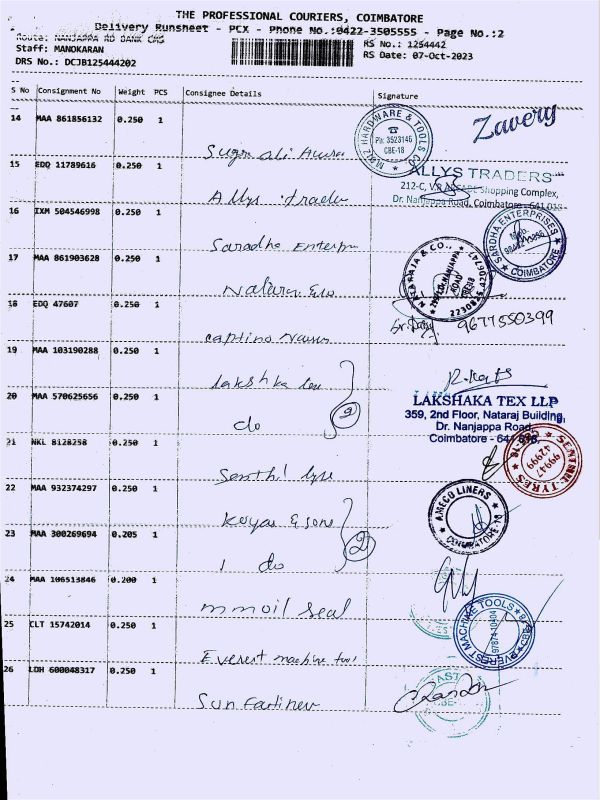 THE PROFESSIONAL COURIERS, COIMBATORE
Delivery Runsheet - PCX - Phone No.:0422-3505555 - Page No.:2
Route: NANJAPPA RD BANK CBS
RS No.: 1254442
Staff: MANOKARAN
RS Date: 07-Oct-2023
DRS No.: DCJB125444202
S No Consignment No Weight PCS Consignee Details Signature
14 MAA 861856132 0.250 1
HARDWARE & TOOLS
Ph: 3523146
CBE-18
Zavery
15 EDQ 11789616 0.250 1
Allys trader
ALLYS TRADERS
212-C, Shopping Complex,
Dr. Nanjappa Road, Coimbatore - 641 018
16 IXM 504546998 0.250 1
Saradha Enterpr
SARDHA ENTERPRISES
COIMBATORE
17 MAA 861903628 0.250 1
NATARAJA & CO.,
NANJAPPA
ROAD
CBE-18
18 EDQ 47607 0.250 1
9677550399
19 MAA 103190288 0.250 1
lakshka
20 MAA 570625656 0.250 1
do
2
LAKSHAKA TEX LLP
359, 2nd Floor, Nataraj Building,
Dr. Nanjappa Road,
Coimbatore - 641 018.
21 NKL 8128258 0.250 1
Senthil
SENTHIL TYRES
99947
42999
22 MAA 932374297 0.250 1
& sons
AMECO LINERS
COIMBATORE-18
23 MAA 300269694 0.205 1
do
2
24 MAA 106513846 0.200 1
mmoil Seal
25 CLT 15742014 0.250 1
Everest machine tool
EVEREST MACHINE TOOLS
97874-10404
26 LDH 600048317 0.250 1
Sun
CBE-